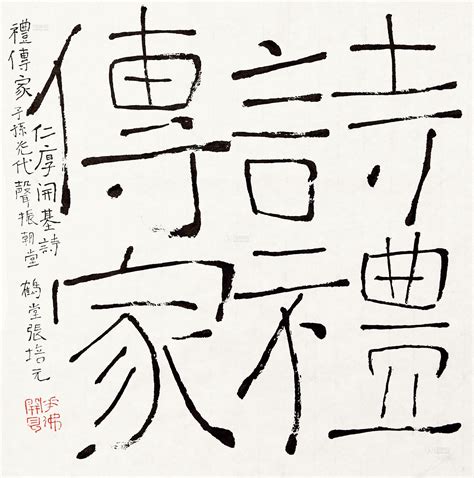 詩禮
傳家
仁厚開基詩
禮傳家子孫代聲振朝堂 鶴堂張培元